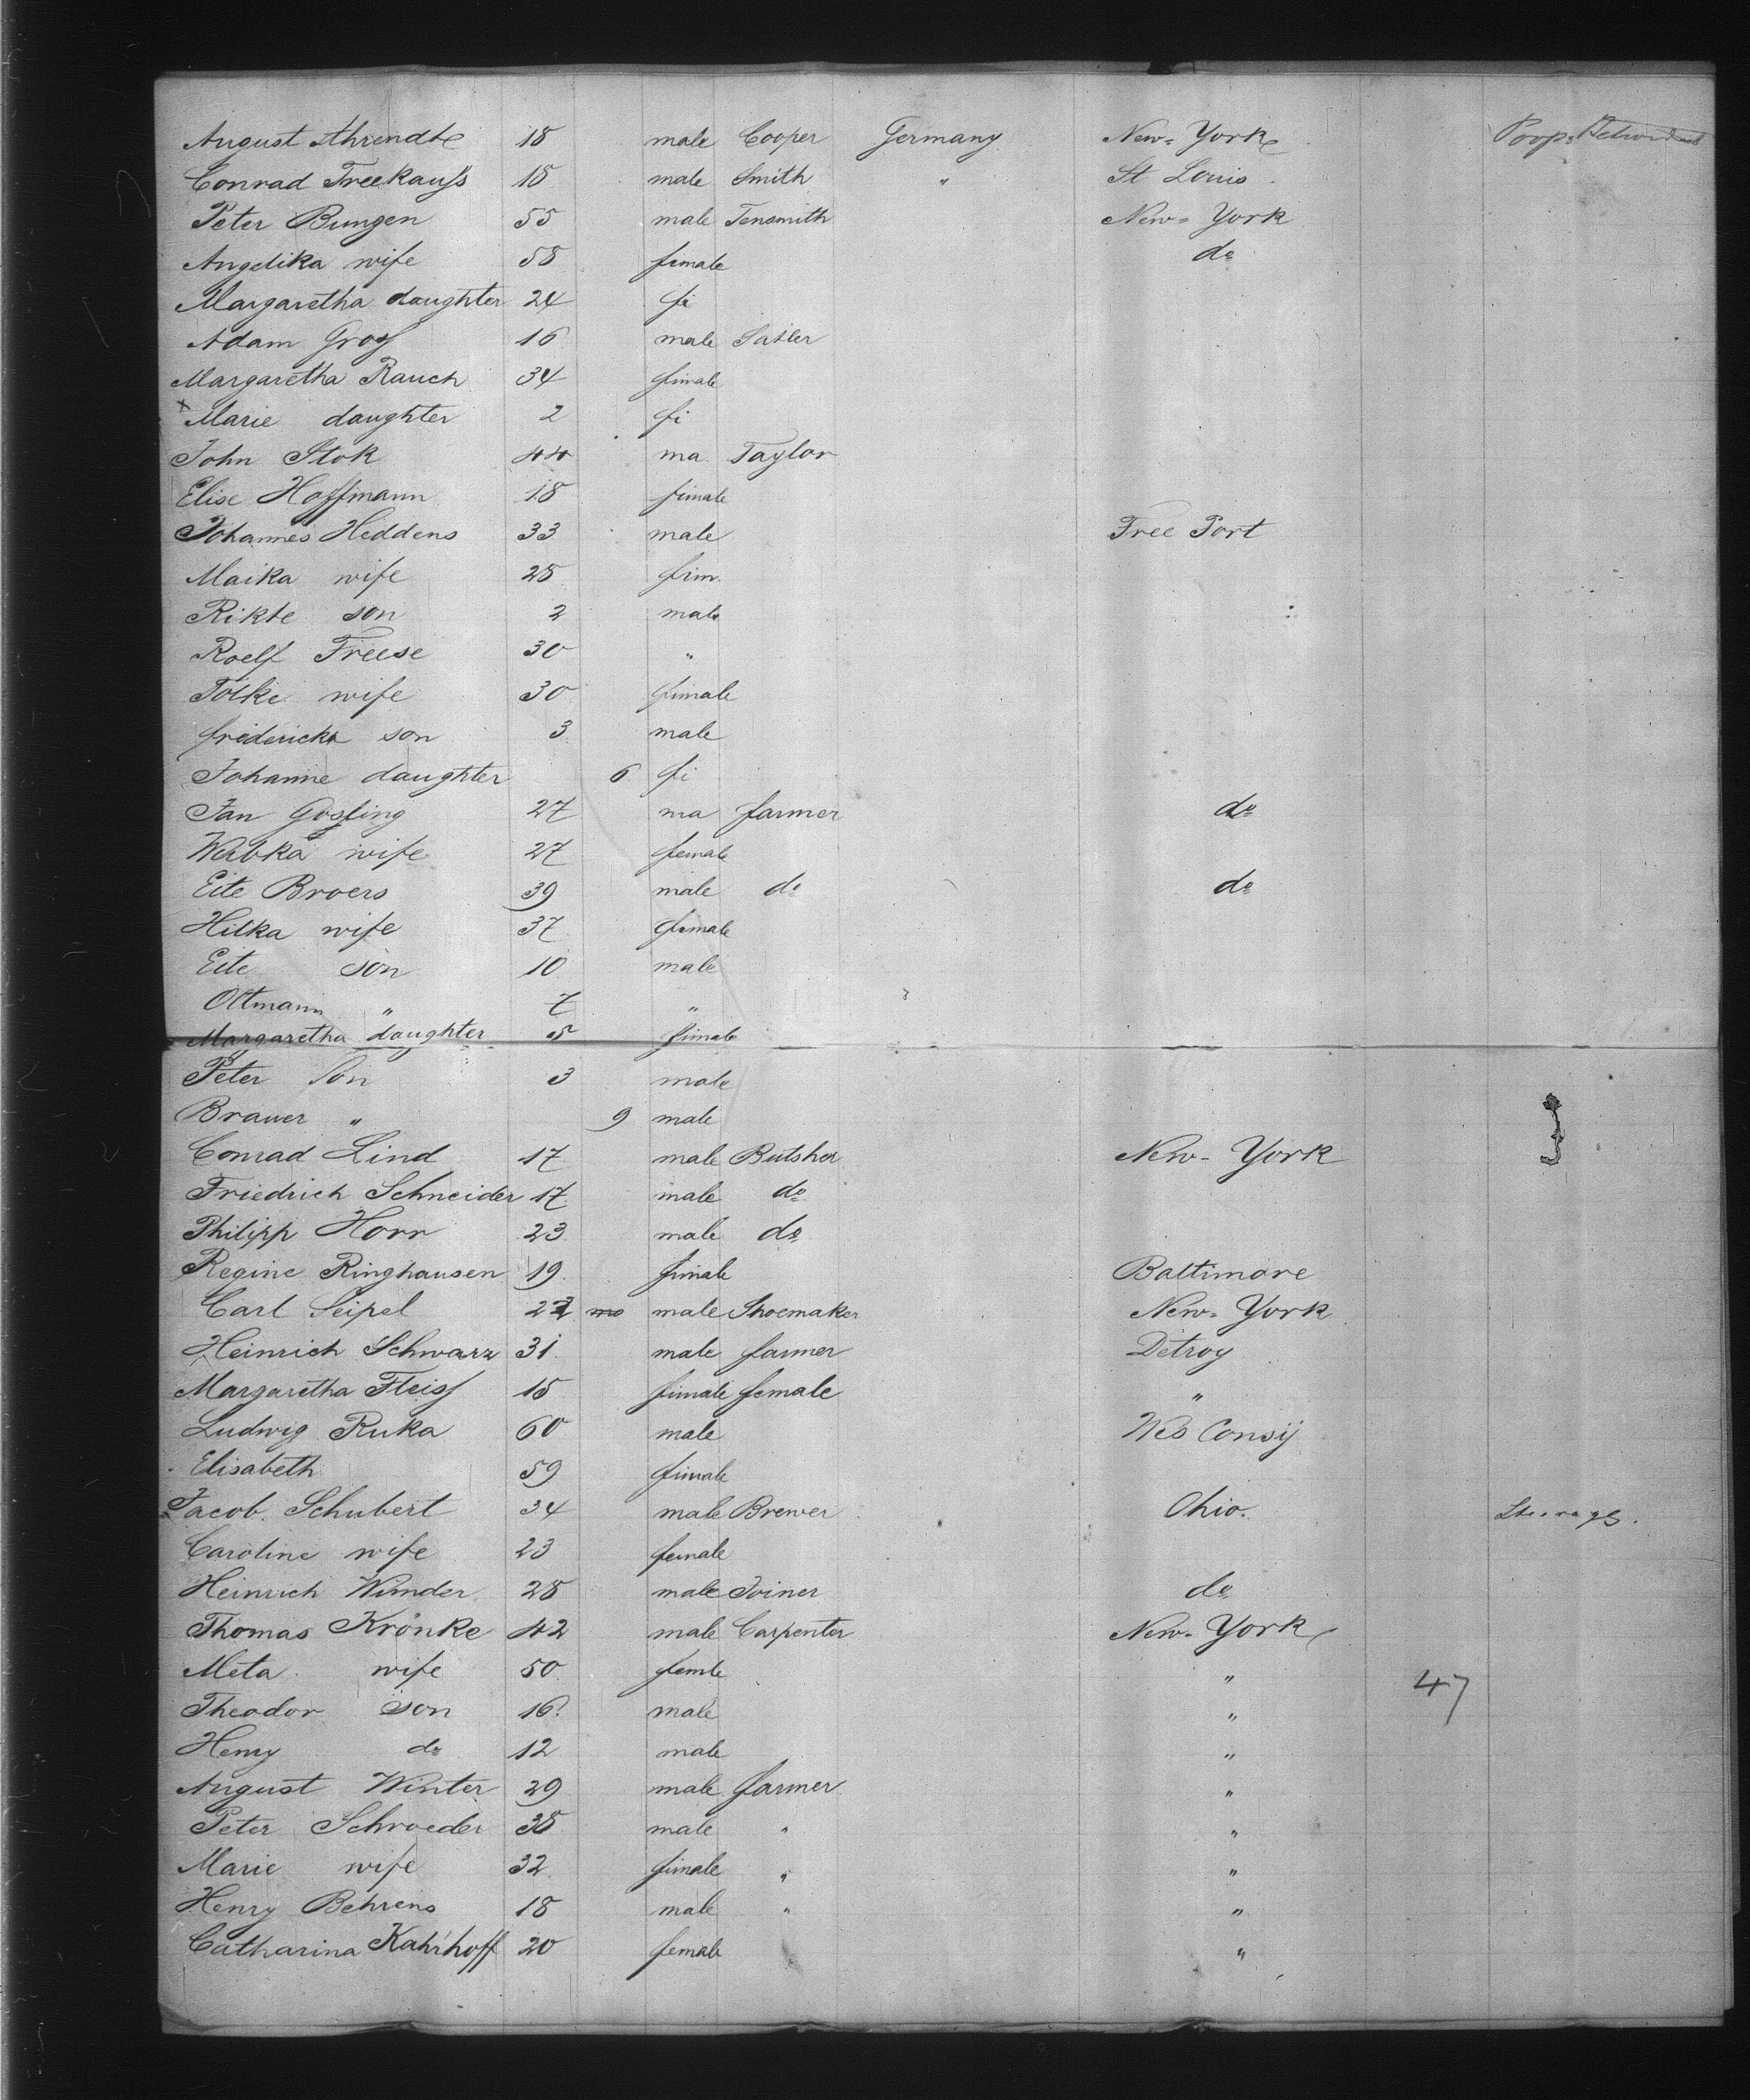 August Ahrendte 18 male Cooper Germany New-York Poop-
Conrad Freekauſs 18 male Smith " St Louis
Peter Bungen 55 male Tensmith New-York
Angelika wife 58 female do
Margaretha daughter 24 fi
Adam Groſs 16 male Satler
Margaretha Rauch 34 fimale
x Marie daughter 2 fi
John Stok 44 ma. Taylor
Elise Hoffmann 18 fimale
Johannes Heddens 33 male Free Port
Maika wife 28 fim.
Rikte son 2 male
Roelf Freese 30 "
Tölke wife 30 fimale
fridericka son 3 male
Johanne daughter 6 fi
Jan Gosling 27 ma farmer do
Wübka wife 27 female
Eite Broers 39 male do do
Hilka wife 37 female
Eite son 10 male
Oltmann " 7 "
Margaretha daughter 5 fimale
Peter Son 3 male
Brauer " 9 male
Conrad Lind 17 male Butsher New-York
Friedrich Schneider 17 male do
Philipp Horr 23 male do
Regine Ringhausen 19 fimale Baltimore
Carl Seipel mo male Shoemaker New-York
Heinrich Schwarz 31 male farmer Detroy
Margaretha Fleiſs 15 fimale female "
Ludwig Ruka 60 male Wes Consij
Elisabeth 59 fimale
Jacob Schubert 34 male Brewer Ohio. Steerage.
Caroline wife 23 female
Heinrich Wunder 28 male Joiner do
Thomas Krönke 42 male Carpenter New-York
Meta wife 50 femle "
47
Theodor son 16 male "
Henry do 12 male "
August Winter 29 male farmer "
Peter Schroeder 38 male " "
Marie wife 32 fimale " "
Henry Behrens 18 male " "
Catharina Kahrhoff 20 female "